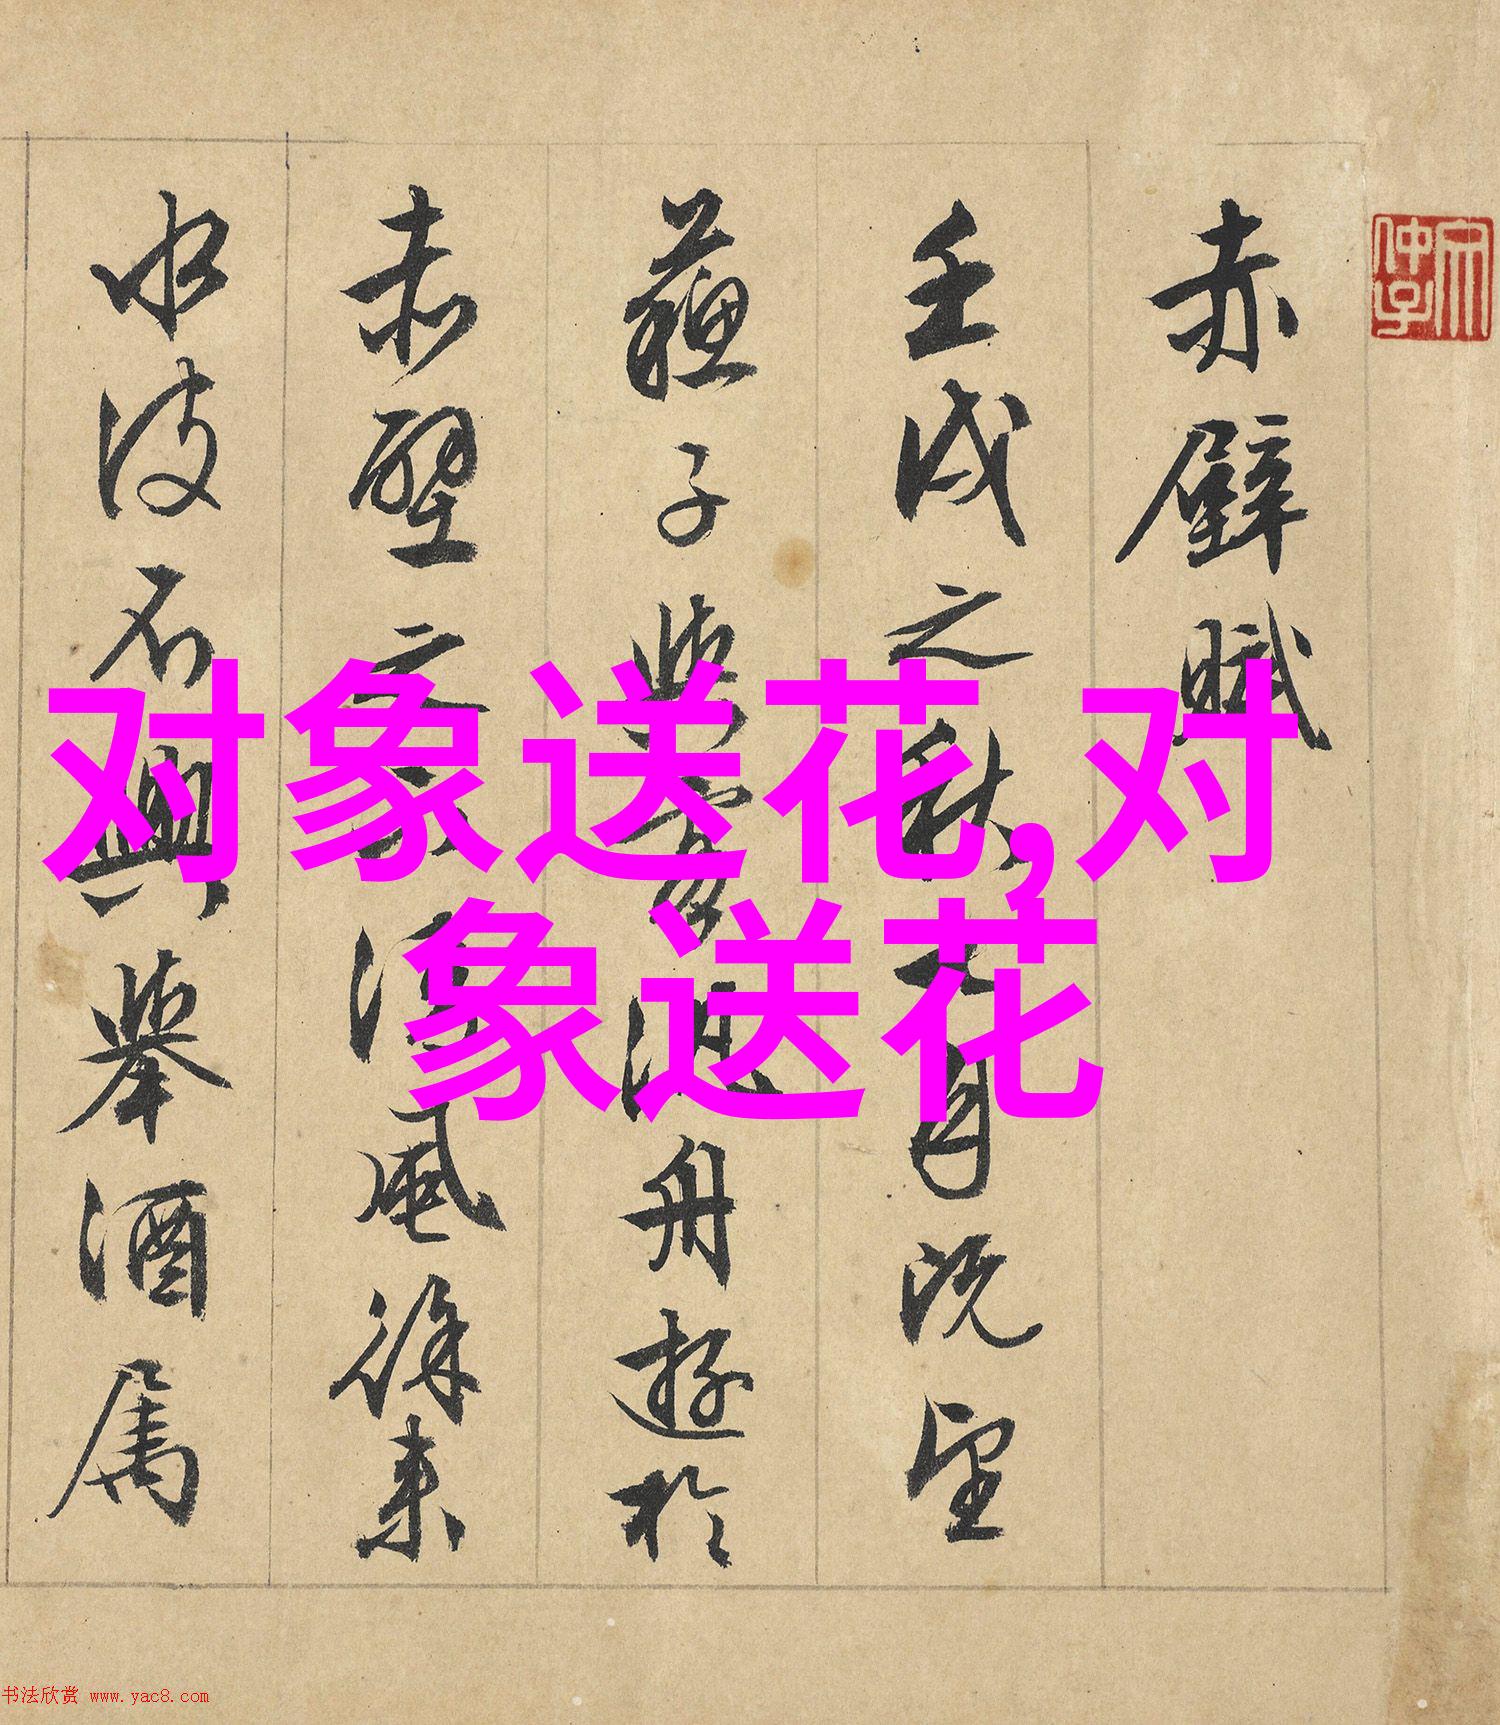 赤壁賦
壬戌之秋七月既望
蘇子與客汎舟遊於
赤壁之下清風徐來
水波不興舉酒屬
对象送花,对
象送花
书法欣赏 www.yac8.com